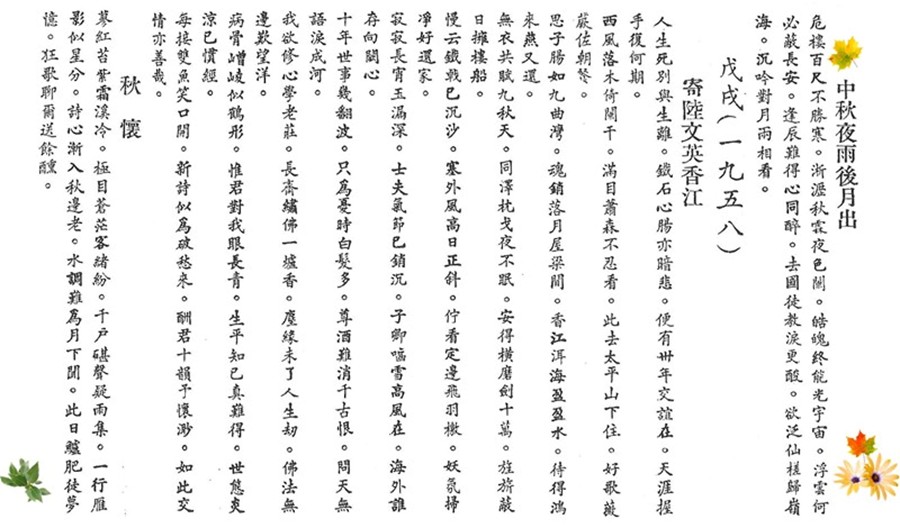 中秋夜雨後月出
危樓百尺不勝寒。淅瀝秋霖夜色闌。皓魄終能光宇宙。浮雲何
必蔽長安。逢辰難得心同醉。去國徒教淚更酸。欲泛仙槎歸嶺
海。沉吟對月雨相看。
戊戌(一九五八)
寄陸文英香江
人生死別與生離。鐵石心腸亦暗悲。便有卅年交誼在。天涯握
手復何期。
西風落木倚闌干。滿目蕭森不忍看。此去太平山下住。好歌薇
蕨佐朝餐。
思子腸如九曲灣。魂銷落月屋梁間。香江洱海盈盈水。待得鴻
來燕又還。
無衣共賦九秋天。同澤枕戈夜不眠。安得橫磨劍十萬。旌旂蔽
日擁樓船。
慢云鐵戟已沉沙。塞外風高日正斜。佇看定邊飛羽檄。妖氛掃
淨好還家。
寂寂長宵玉漏深。士夫氣節已銷沉。子卿嚙雪高風在。海外誰
存向闕心。
十年世事幾翻波。只為憂時白髮多。尊酒難消千古恨。問天無
語淚成河。
我欲修心學老莊。長齋繡佛一爐香。塵緣未了人生劫。佛法無
邊歎望洋。
病骨嶒崚似鶴形。惟君對我眼長青。生平知己真難得。世態炎
涼已慣經。
每接雙魚笑口開。新詩似為破愁來。酬君十韻予懷渺。如此交
情亦善哉。
秋懷
蓼紅苔紫霜溪冷。極目蒼茫客緒紛。千戶碪聲疑雨集。一行雁
影似星分。詩心漸入秋邊老。水調難為月下聞。此日鱸肥徒夢
憶。狂歌聊爾送餘醺。